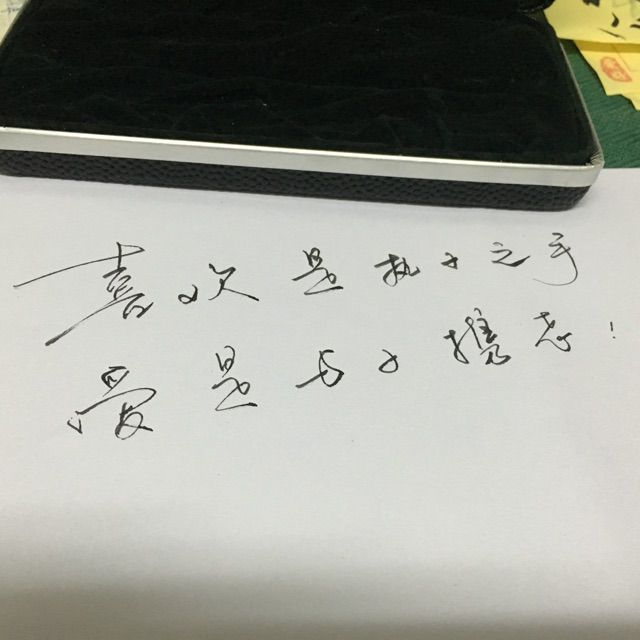 喜欢是执子之手
爱是与子携老!